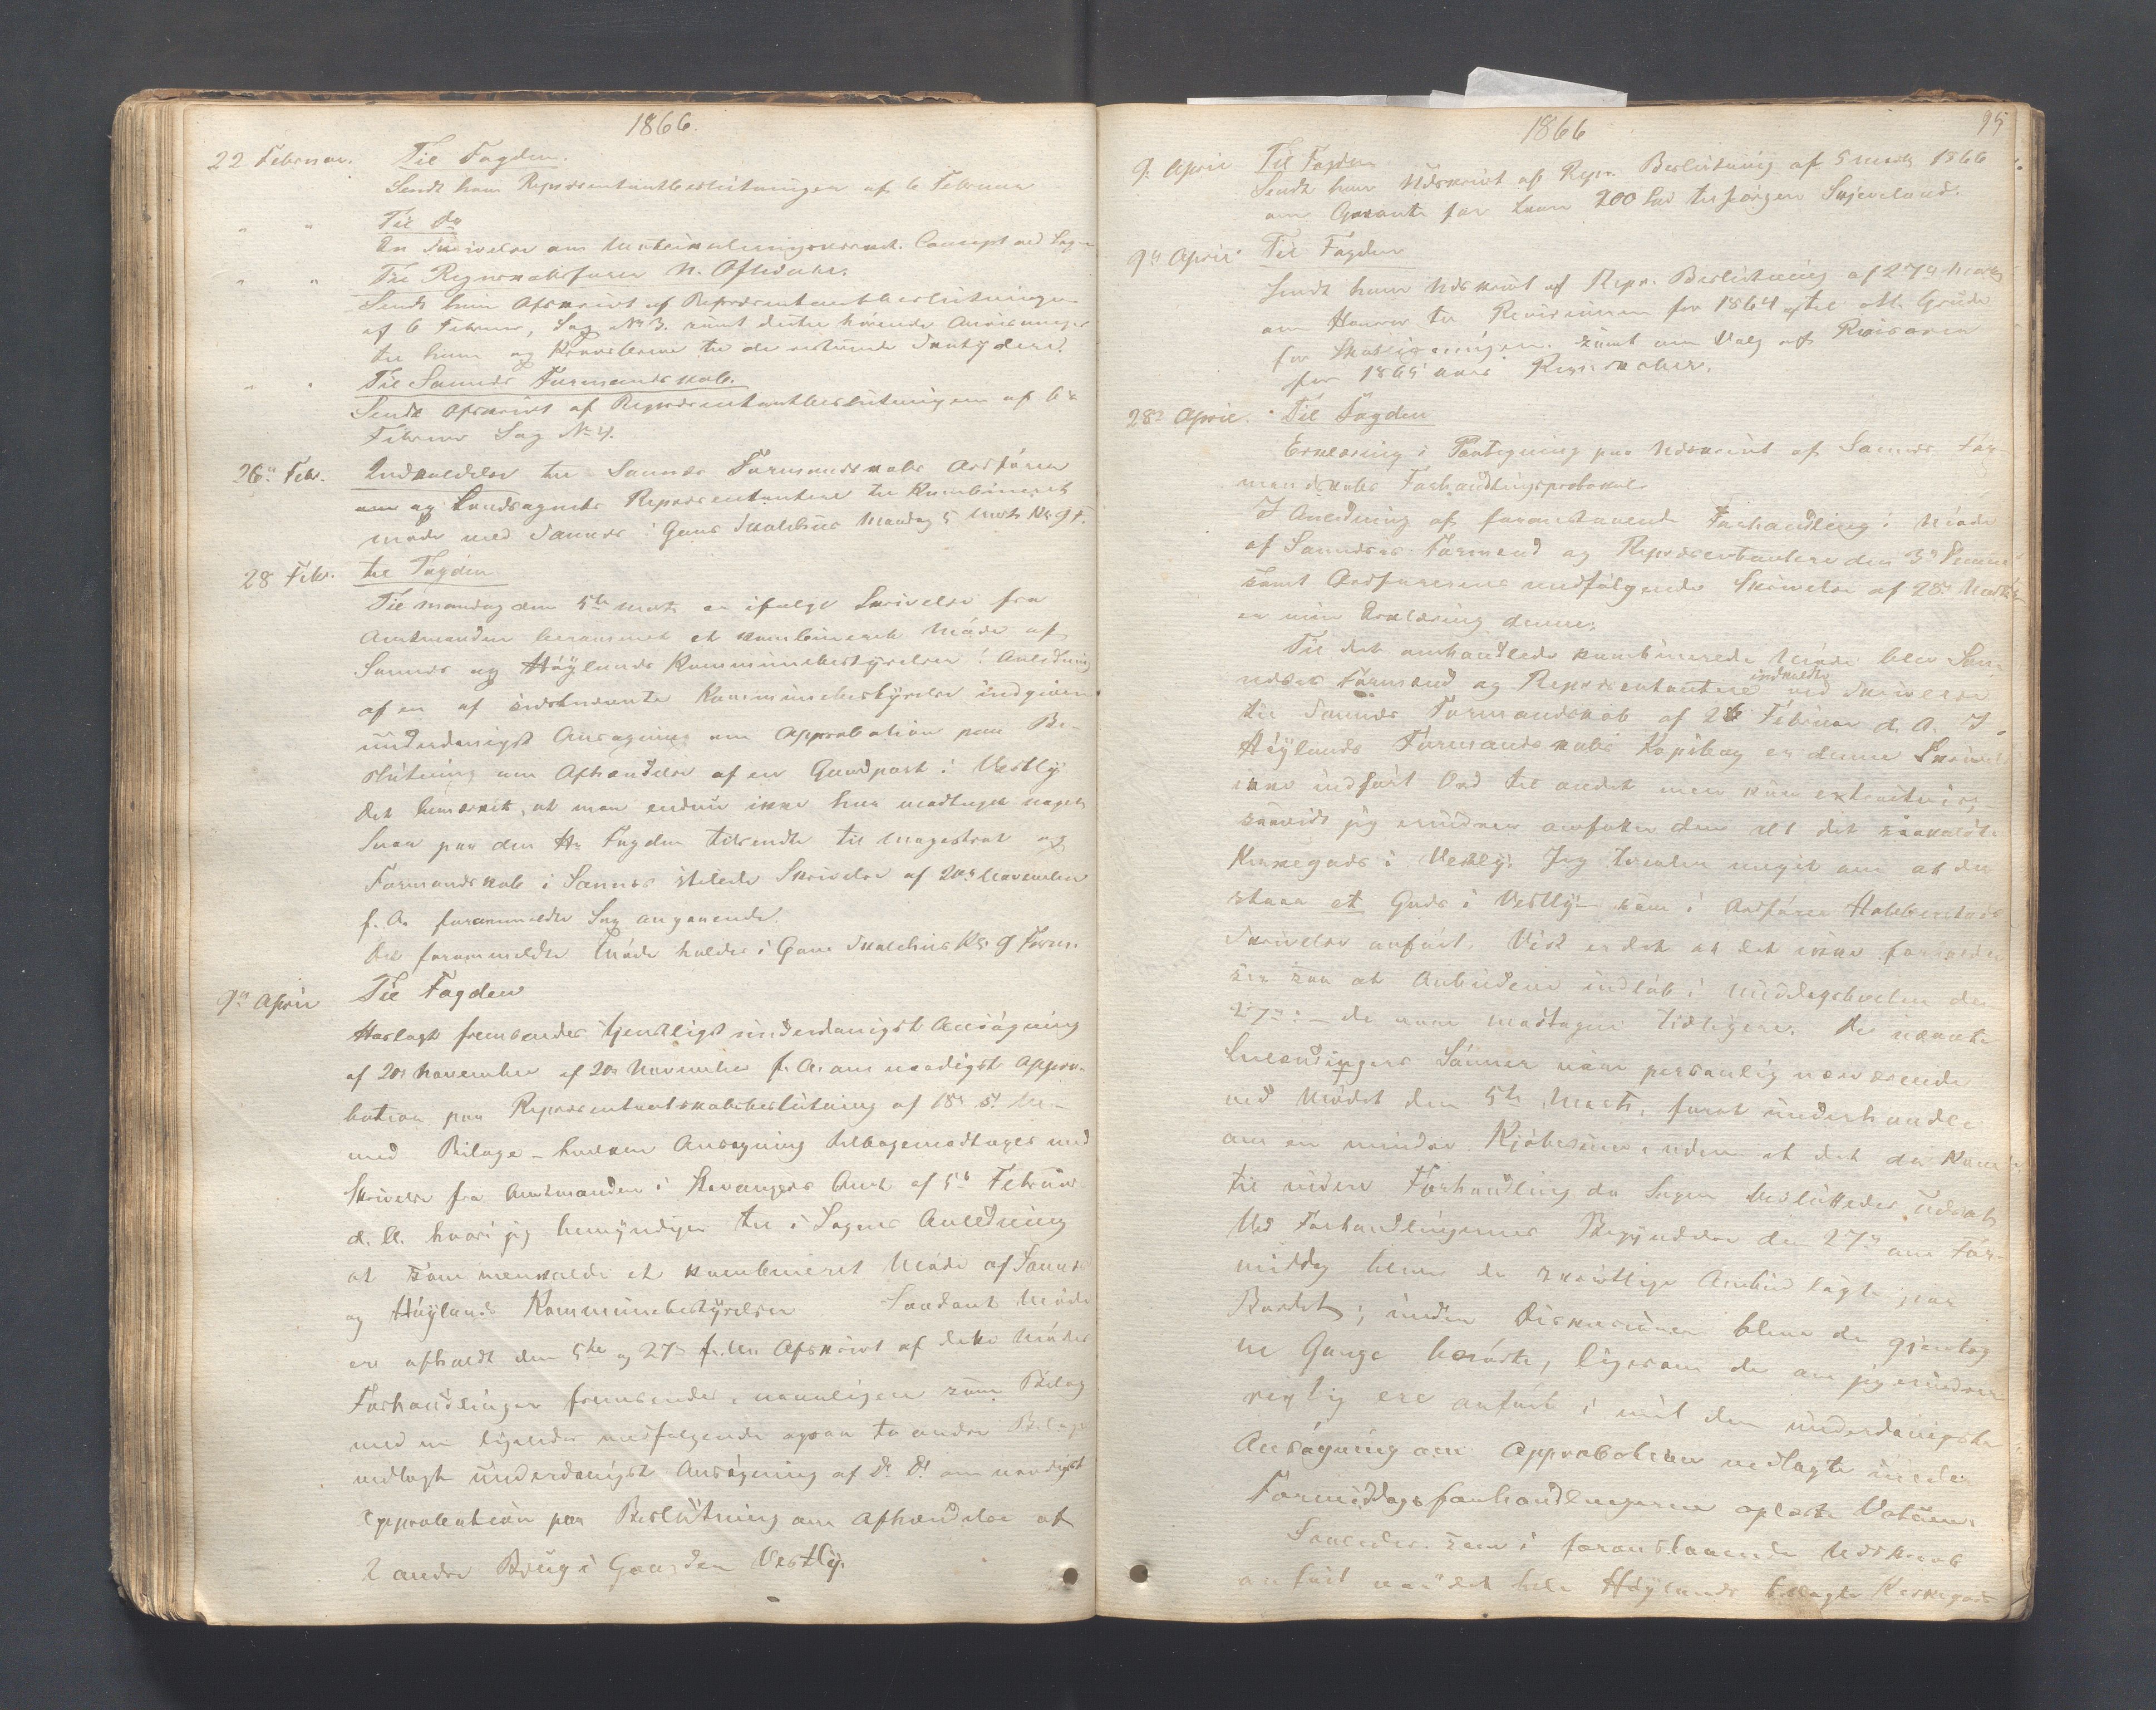 1866.
22 Februar. Til Fogden.
Sendt ham Repræsentantbeslutningen af 6 Februar
" " Til Do
En Skrivelse om Matrikuleringsvæsenet. Concept ved Sagen
" " Til Regnskabsfører N. Oftedahl.
Sendt ham Afskrivt af Repræsentantbeslutningen
af 6 Februar, Sag No 3. samt dertil hörende Anvisninger
til ham og til de Skatydere.
" " Til Sannes Formandskab.
Sendt Afskrivt af Repræsentantbeslutningen af 6te
Februar Sag No 4.
26de Febr. Indkaldelse til Sannes Formandskabs Ordförer
og Landsognets Repræsentantere til Kombineret
Möde med Sannes i Gans Skolehus Mandag 5 Marts Kl. 9 F.
28 Febr. til Fogden
Til Mandag den 5te Marts er ifølge Skrivelse fra
Amtmanden berammet et kombineret Möde af
Sannes og Höylands Kommunebestyrelser i Anledning
af en af sidstnævnte Kommunebestyrelse indgiven
underdanigst Ansøgning om Approbation paa Be-
slutning om Afhændelse af en Gaardpart i Vestly
Det bemærkes, at man endnu ikke har modtaget noget
Svar paa den Hr Fogden tilsendte til Magistrat og
Formandskab i Sannes stilede Skrivelse af 20de November
f. A. forommeldte Sag angaaende.
Det forommeldte Möde holdes i Gans Skolehus Kl. 9 Form.
9de April Til Fogden
Hoslagt fremsendes tjenstligst underdanigst Ansögning
af 20de November af 20de November f. A. om naadigst Appro-
bation paa Repræsentantskabsbeslutning af 18de s. M.
med Bilage - hvilken Ansøgning tilbagemodtages med
Skrivelse fra Amtmanden i Stavangers Amt af 5te Februar
d. A. hvori jeg bemyndiges til i Sagens Anledning
at sammenkalde et kombineret Möde af Sannes
og Höylands Kommunebestyrelser Saadant Möde
er afholdt den 5te og 27de f. M. Afskrivt af dette Mödes
Forhandlinger fremsendes, navnligen som Bilag
med en ligeledes medfølgende ogsaa to andre Bilage
vedlagt underdanigst Ansögning af D. D. om naadigst
Approbation paa Beslutning om Afhændelse af
2 andre Brug i Gaarden Vestly.
1866 95
9. April Til Fogden
Sendt ham Udskrivt af Repr. Beslutning af 5 Marts 1866
om Garanti for Laan 200 Spd til Jörgen Skjeveland.
9de April Til Fogden
Sendt ham Udskrivt af Repr. Beslutning af 27de Marts
om Honorar til Revisionen for 1864
for Skatligningen. samt om Valg af Revisorer
for 1865 Aars Regnskaber.
28de April. Til Fogden
Erklæring i Paategning paa Udskrivt af Sannes For-
mandskabs Forhandlingsprotokol
I Anledning af foranstaaende Forhandling i Möde
af Sannes Formænd og Repræsentantere den 3de
samt Ordførerens medfölgende Skrivelse af 28de
er min Erklæring denne:
Til det omhandlede kombinerede Möde blev San-
nes Formænd og Repræsentantere indkaldte ved Skrivelse
til Sannes Formandskab af 26 Februar d. A. I
Höylands Formandskabs Kopibog er denne Skrivelse
ikke indfört Ord til andet men kun extractvis,
saavidt jeg erindrer omfatter den alt det saakaldte
Kirkegods i Vestly. Jeg tvivler meget om at der
staar et Gods i Vestly som i Ordförer Hobberstads
Skrivelse anfört. Vist er det at det ikke forholder
sig saa at Anbudene indløb i Middagstunden den
27de: - de vare modtagne tidligere. De nævnte
Sönner vare personlig nærværende
ved Mödet den 5te Marts, forat underhandle
om en mindre Kjöbesum, uden at det da kom
til videre Forhandling da Sagen besluttedes udsat.
Ved Forhandlingernes Begyndelse den 27de om For-
middag bleve de skriftlige Anbud lagte paa
Bordet; under Diskussionen bleve de gjentag-
ne Gange berörte, ligesom de om jeg erindrer
rigtig ere anført i mit den underdanigste
Ansögning om Approbation vedlagte
Formiddagsforhandlingerne oplæste Votum.
Saaledes som i foranstaaende Udskrivt
anført var det hele Höylands Kirkegods